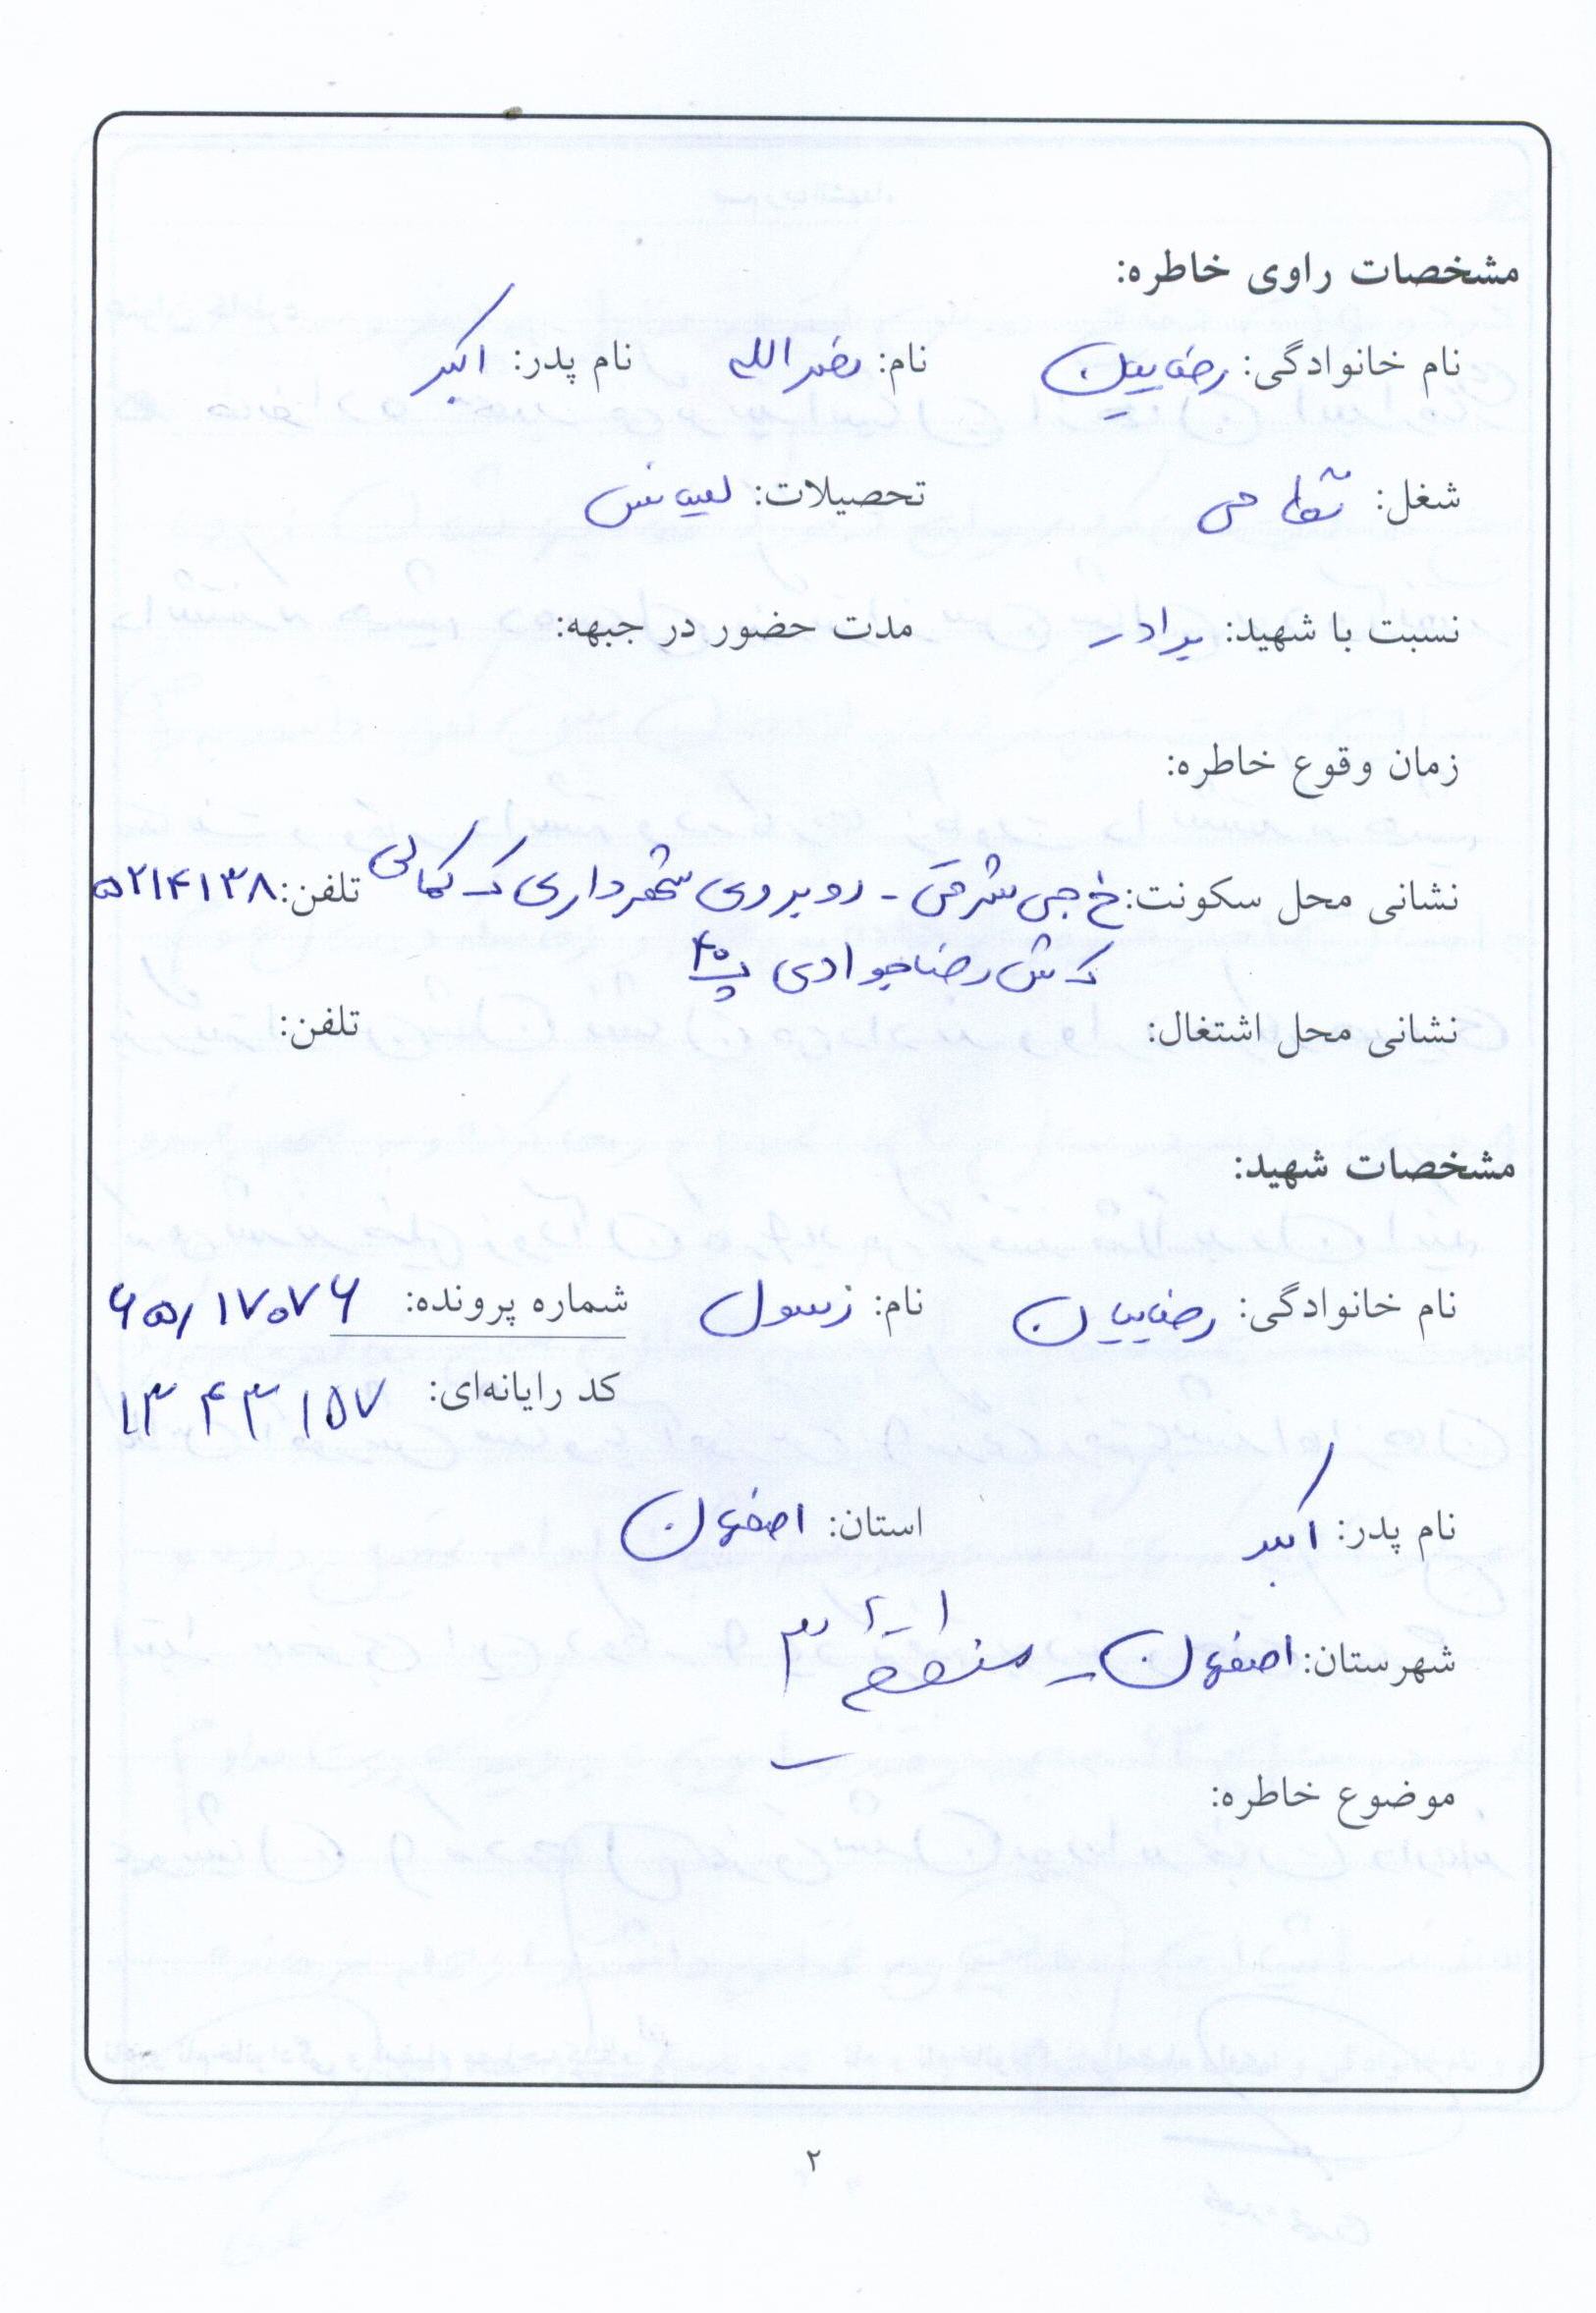 مشخصات راوی خاطره:
نام خانوادگی: رضاییان نام: نصراله نام پدر: اکبر
شغل: نظامی تحصیلات: لیسانس
نسبت با شهید: برادر مدت حضور در جبهه:
زمان وقوع خاطره:
نشانی محل سکونت: خ جی شرقی - روبروی شهرداری ک کمالی تلفن: ۵۲۱۴۱۳۸
ک ش رضا جوادی پ ۴۰
نشانی محل اشتغال: تلفن:
مشخصات شهید:
نام خانوادگی: رضاییان نام: رسول شماره پرونده: ۶۵/۱۷۰۷۶
کد رایانه‌ای: ۱۳۴۳۱۵۷
نام پدر: اکبر استان: اصفهان
شهرستان: اصفهان - منطقه ۳
موضوع خاطره:
۲